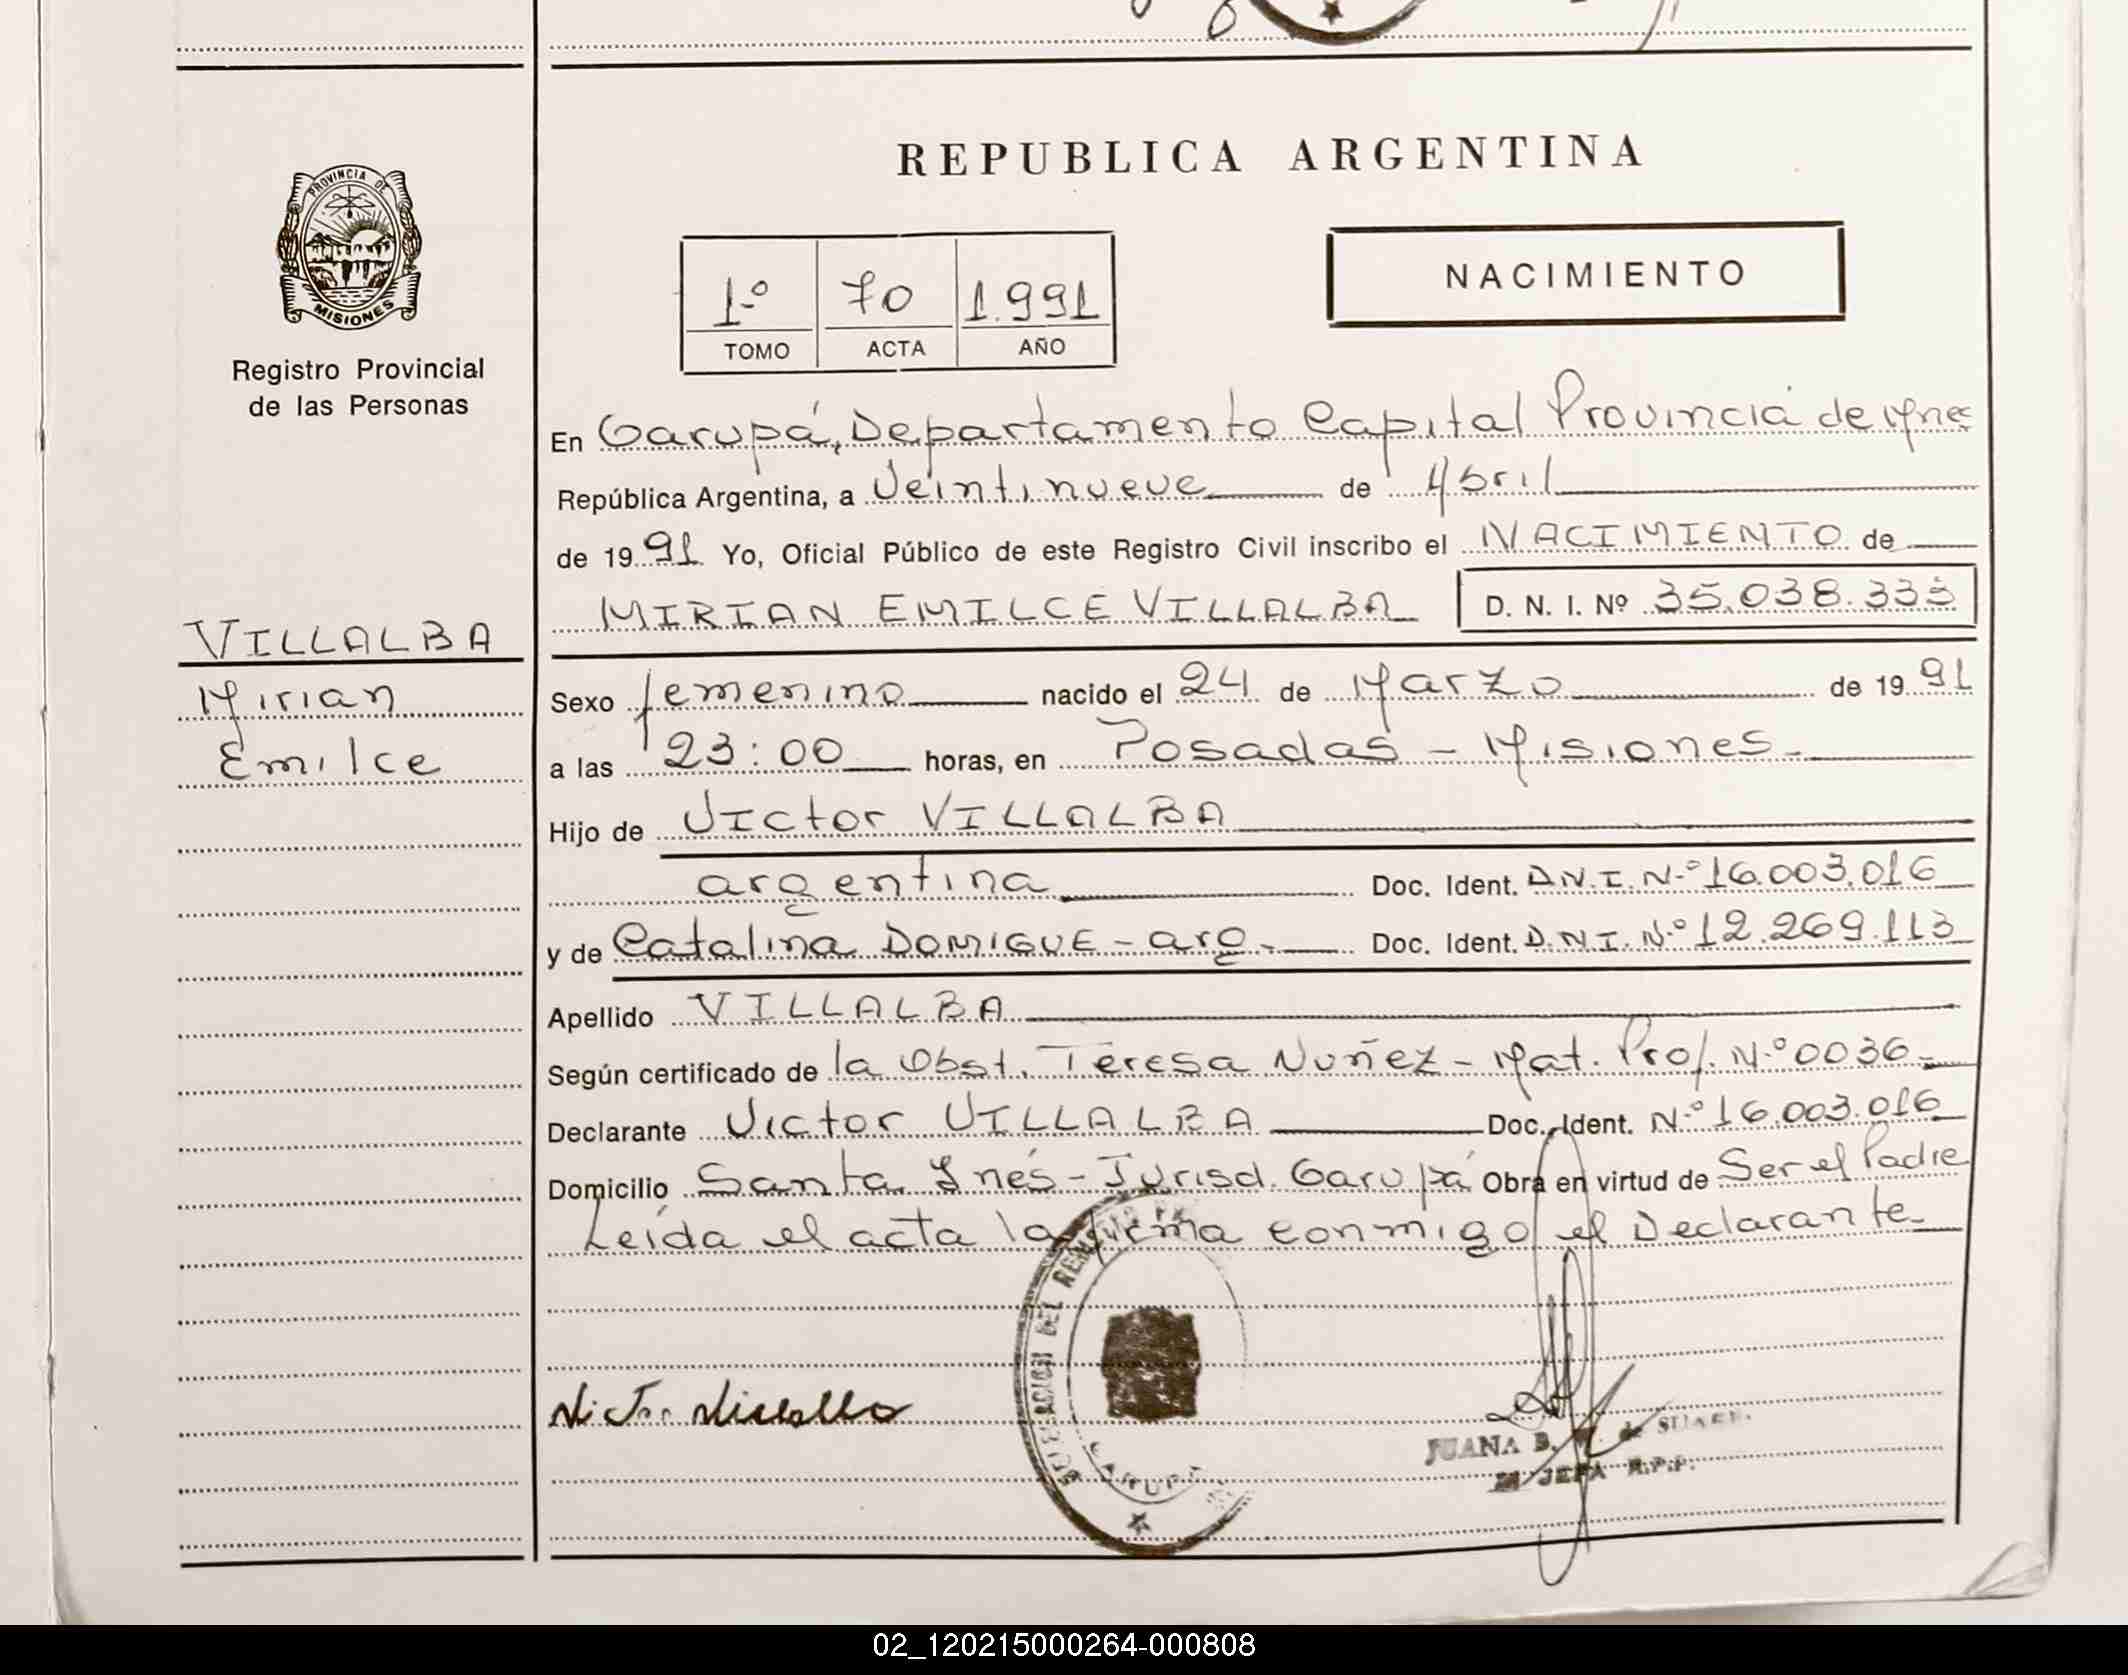 REPUBLICA ARGENTINA
PROVINCIA DE
MISIONES
Registro Provincial
de las Personas
1º 70 1.991
TOMO ACTA AÑO
NACIMIENTO
En Garupá, Departamento Capital Provincia de Mnes
República Argentina, a Veintinueve de Abril
de 1991 Yo, Oficial Público de este Registro Civil inscribo el NACIMIENTO de
MIRIAN EMILCE VILLALBA D. N. I. Nº 35.038.333
VILLALBA
Mirian
Emilce
Sexo femenino nacido el 24 de Marzo de 1991
a las 23:00 horas, en Posadas - Misiones-
Hijo de Victor VILLALBA
argentina Doc. Ident. D.N.I. Nº 16.003.016
y de Catalina DOMIGUE - arg. Doc. Ident. D.N.I. Nº 12.269.113
Apellido VILLALBA
Según certificado de la Obst. Teresa Nuñez - Mat. Prof. Nº 0036-
Declarante Victor VILLALBA Doc. Ident. Nº 16.003.016
Domicilio Santa Ynés - Jurisd. Garupá Obra en virtud de Ser el Padre
Leída el acta la firma conmigo el Declarante-
DEL
GARUPA
JUANA B. de SUAREZ
JEFA R.P.P.
02_120215000264-000808